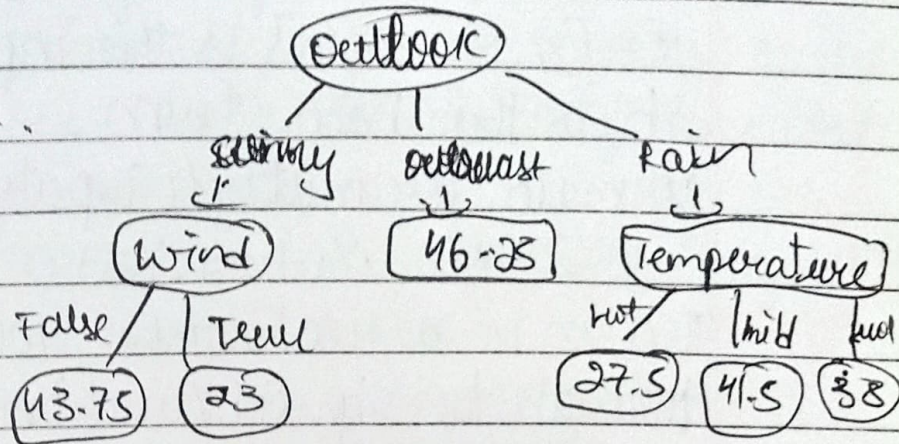 Outlook
Sunny Overcast Rain
Wind 46.25 Temperature
False True hot mild cool
43.75 23 27.5 41.5 38